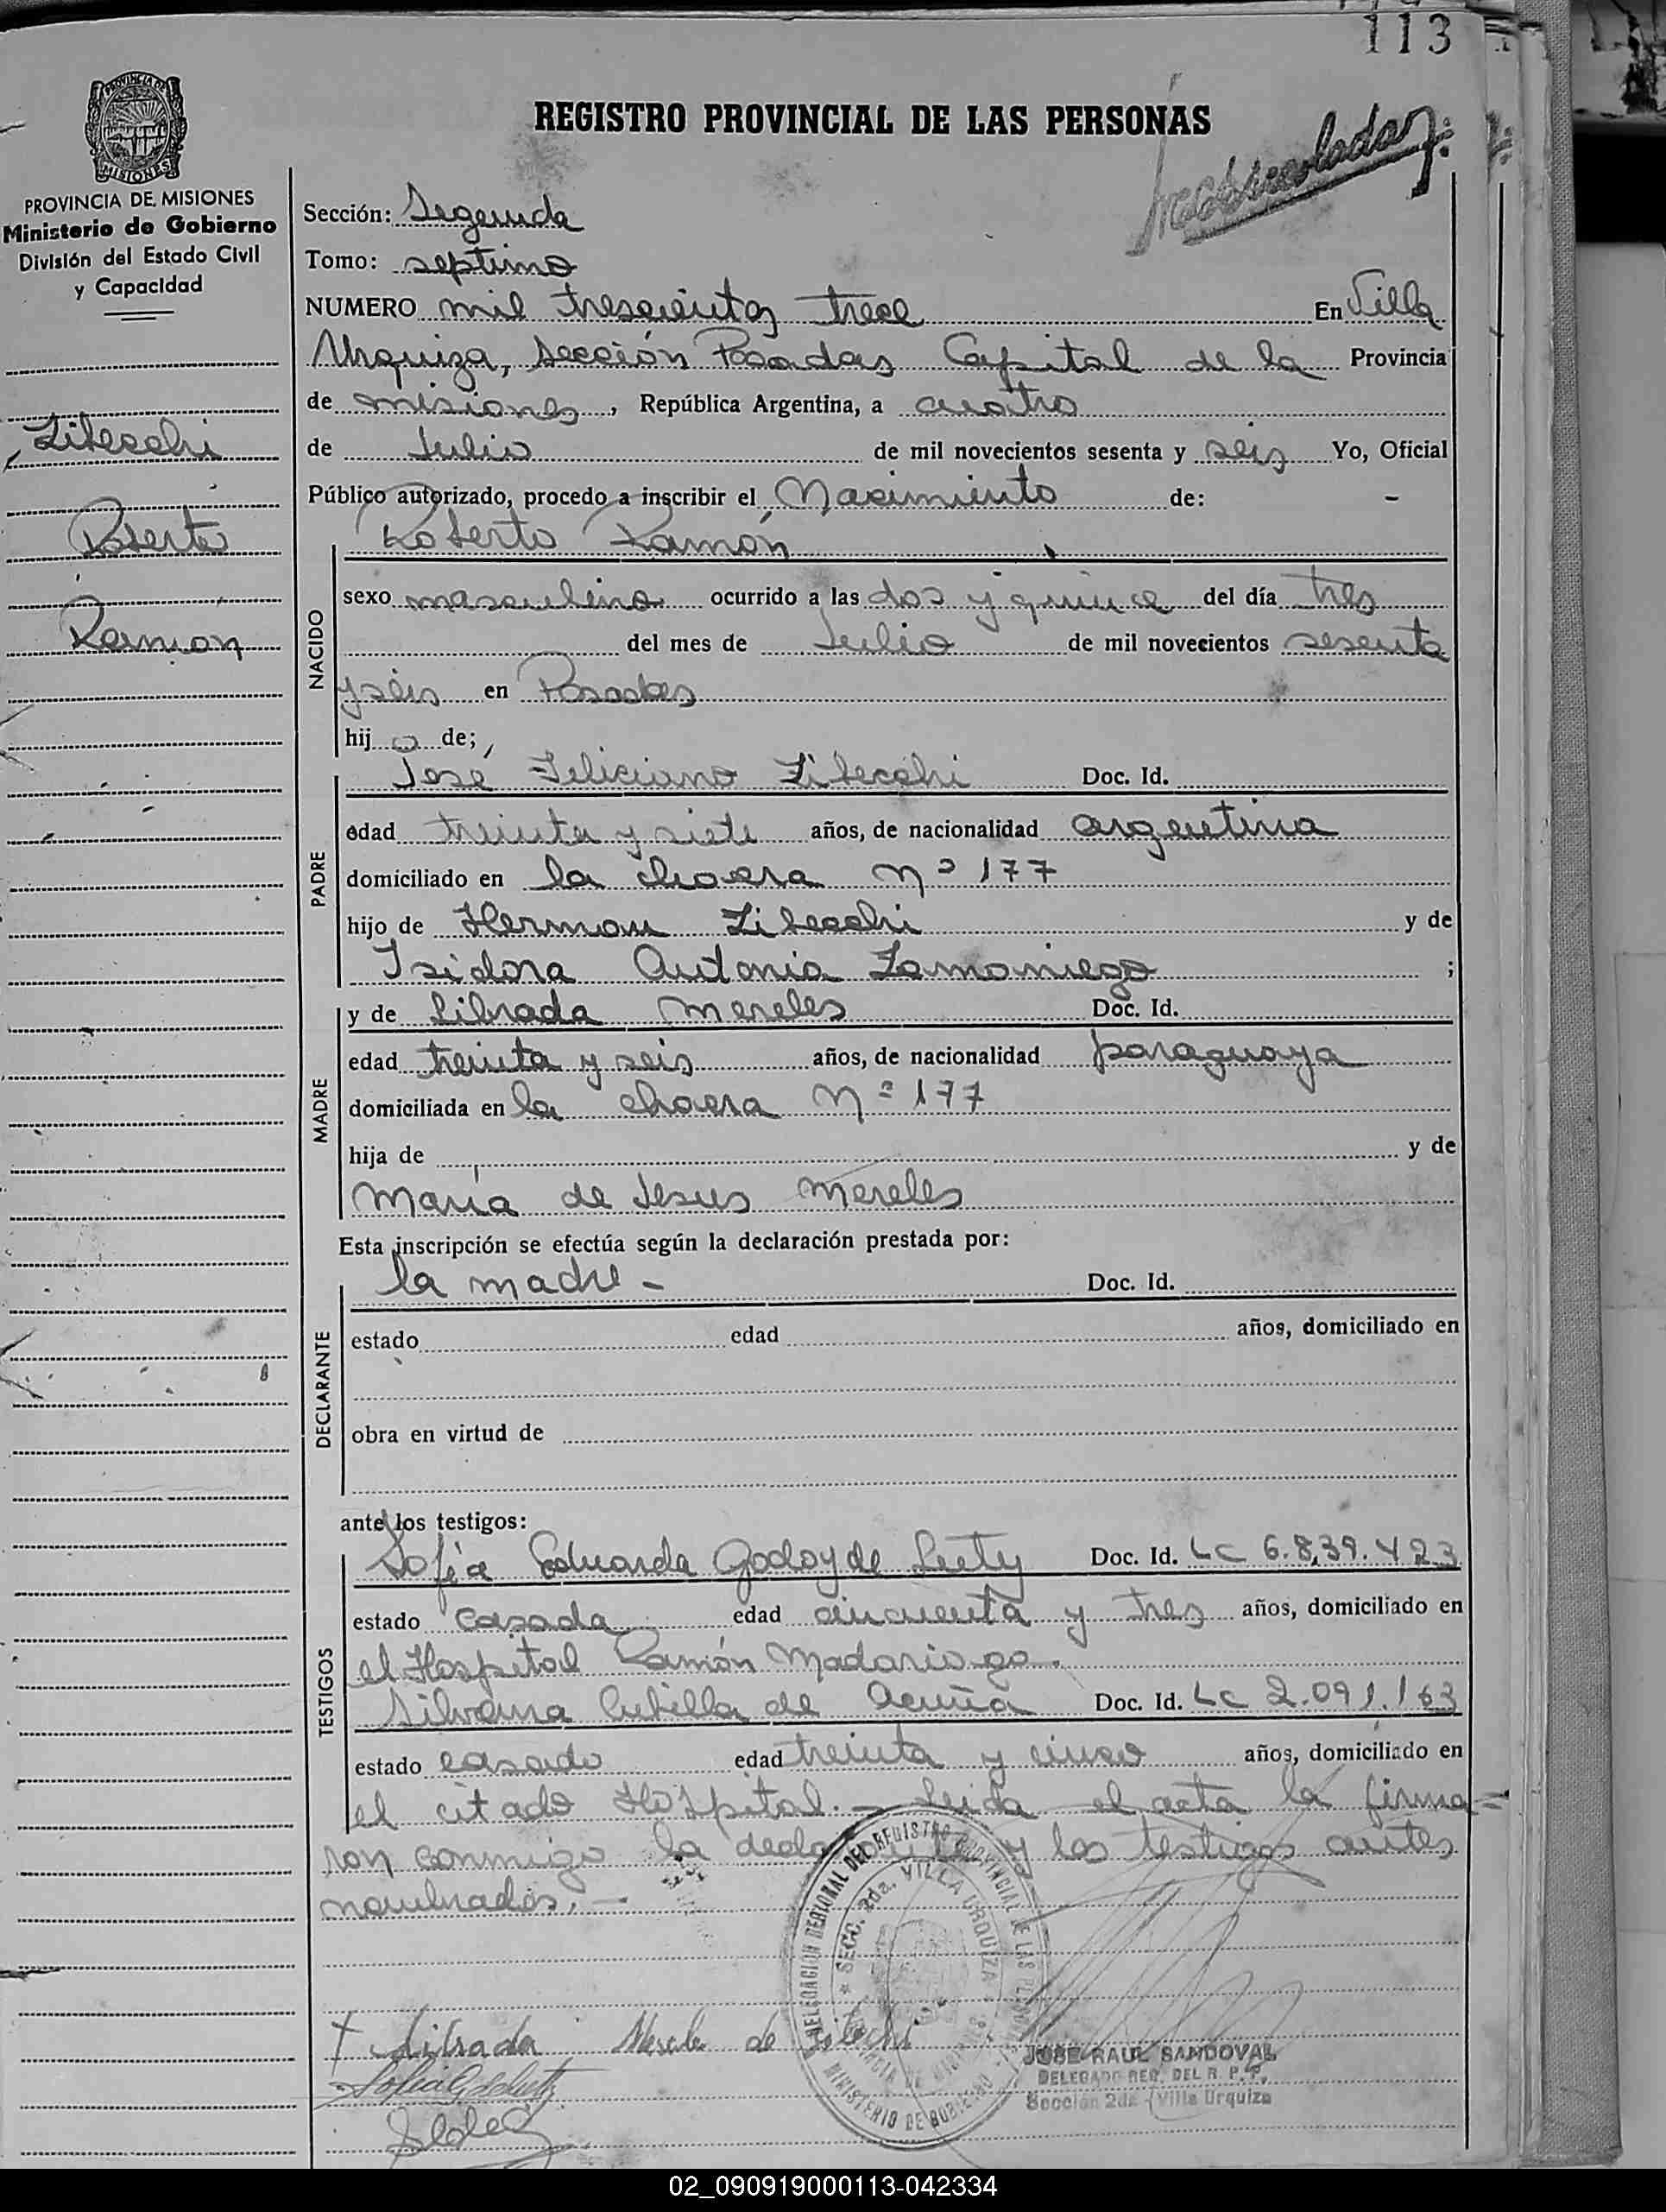 113
REGISTRO PROVINCIAL DE LAS PERSONAS
PROVINCIA DE MISIONES
MISIONES
PROVINCIA DE MISIONES
Ministerio de Gobierno
División del Estado Civil
y Capacidad
Sección: Segunda
Tomo: septimo
NUMERO mil trescientos trece En Villa
Urquiza, sección Posadas Capital de la Provincia
de misiones, República Argentina, a cuatro
de Julio de mil novecientos sesenta y seis Yo, Oficial
Público autorizado, procedo a inscribir el Nacimiento de: -
Zibecchi
Roberto
Ramon
NACIDO
Roberto Ramón
sexo masculino ocurrido a las dos y quince del día tres
del mes de Julio de mil novecientos sesenta
y seis en Posadas
hijo de;
PADRE
José Feliciano Zibecchi Doc. Id.
edad treinta y siete años, de nacionalidad argentina
domiciliado en la chacra Nº 177
hijo de Herman Zibecchi y de
Isidora Antonia Zamaniego ;
MADRE
y de Librada Mereles Doc. Id.
edad treinta y seis años, de nacionalidad paraguaya
domiciliada en la chacra Nº 177
hija de y de
María de Jesus Mereles
Esta inscripción se efectúa según la declaración prestada por:
DECLARANTE
la madre - Doc. Id.
estado edad años, domiciliado en
obra en virtud de
ante los testigos:
TESTIGOS
Sofía Eduarda Godoy de Doc. Id. LC 6.839.423
estado casada edad cincuenta y tres años, domiciliado en
el Hospital Ramón Madariaga.
Silvana Cubilla de Acuña Doc. Id. LC 2.091.163
estado casado edad treinta y cinco años, domiciliado en
el citado Hospital. - Leida el acta la firma=
ron conmigo la declarante y los testigos antes
nombrados. -
DELEGACION REGIONAL DEL REGISTRO PROVINCIAL DE LAS PERSONAS
SECC. 2da. VILLA URQUIZA
PROVINCIA DE MISIONES
MINISTERIO DE GOBIERNO
Librada Mereles de Zibechi
JOSE RAUL SANDOVAL
DELEGADO REG. DEL R. P. P.
Sección 2da - Villa Urquiza
02_090919000113-042334